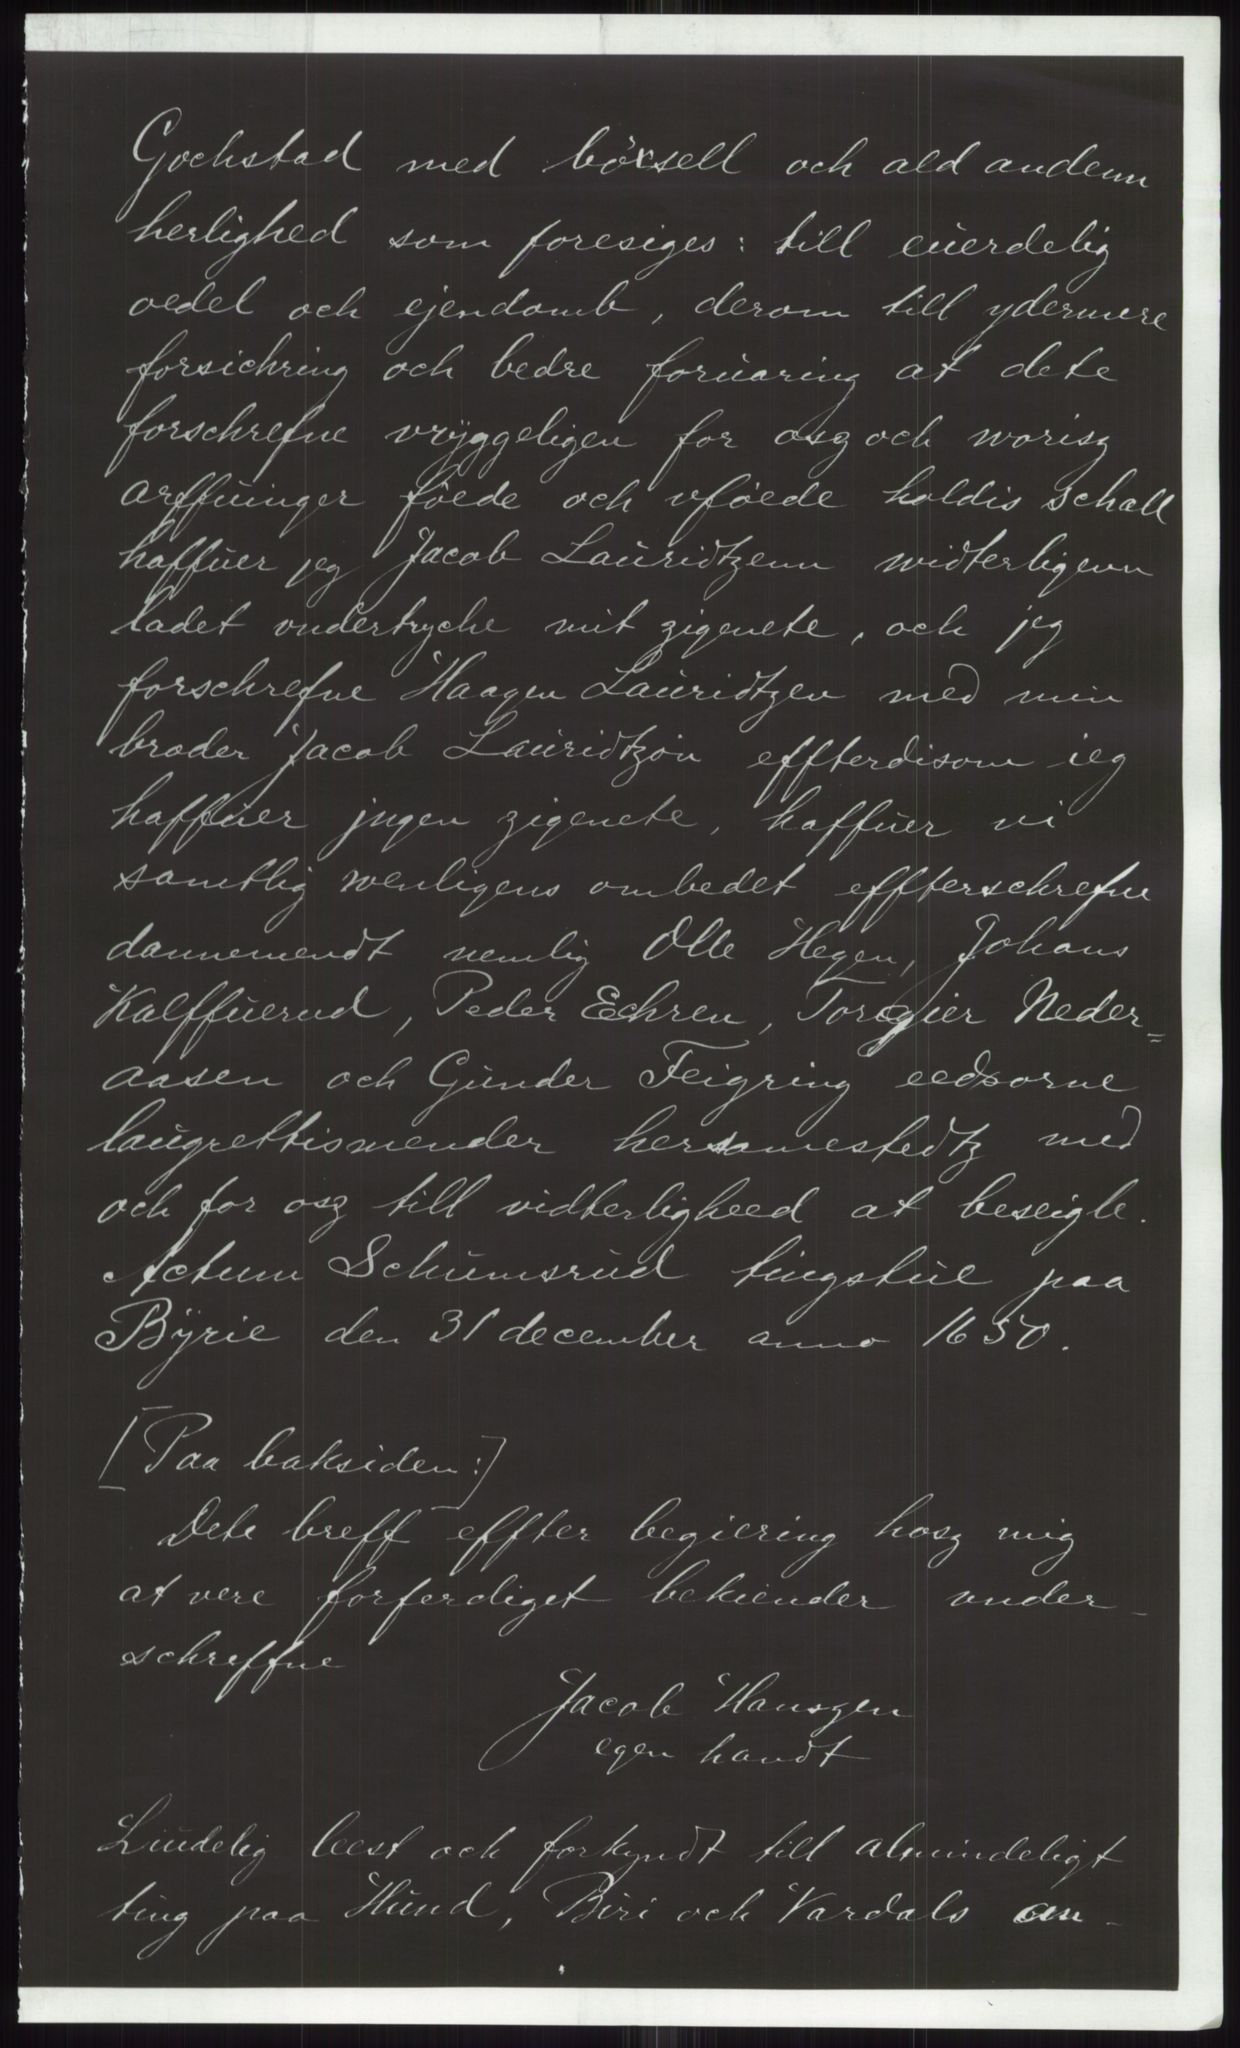 Gochstad med böxsell och ald andenn
herlighed som foresiges: till euerdelig
oedel och ejendomb, derom till ydermere
forsichring och bedre foruaring at dete
forschrefne vryggeligen for osz och worisz
arffuinger föede och vföede holdis schall
haffuer jeg Jacob Lauridtzenn widterligenn
ladet vndertryche mit zignete, och jeg
forschrefne Haagen Lauridtzen med min
broder Jacob Lauridtzön effterdisom ieg
haffuer jngen zignete, haffuer vi
samtlig wenligens ombedet effterschrefne
dannemendt nemlig Olle Hegen, Johans
Kalffuerud, Peder Echren, Torgier Neder=
aasen och Gunder Feigring eedsorne
laugrettismender hersamestedtz med
och for osz till vidterligheed at beseigle.
Actum Schumsrud tingstue paa
Bÿrie den 31 december anno 1650.
[Paa baksiden:]
Dete breff effter begiering hosz mig
at vere forferdiget bekiender vnder-
schreffne
Jacob Hanszen
egen handt
Liudelig leest och forkyndt till almindeligt
ting paa Hund, Biri och Vardals an-